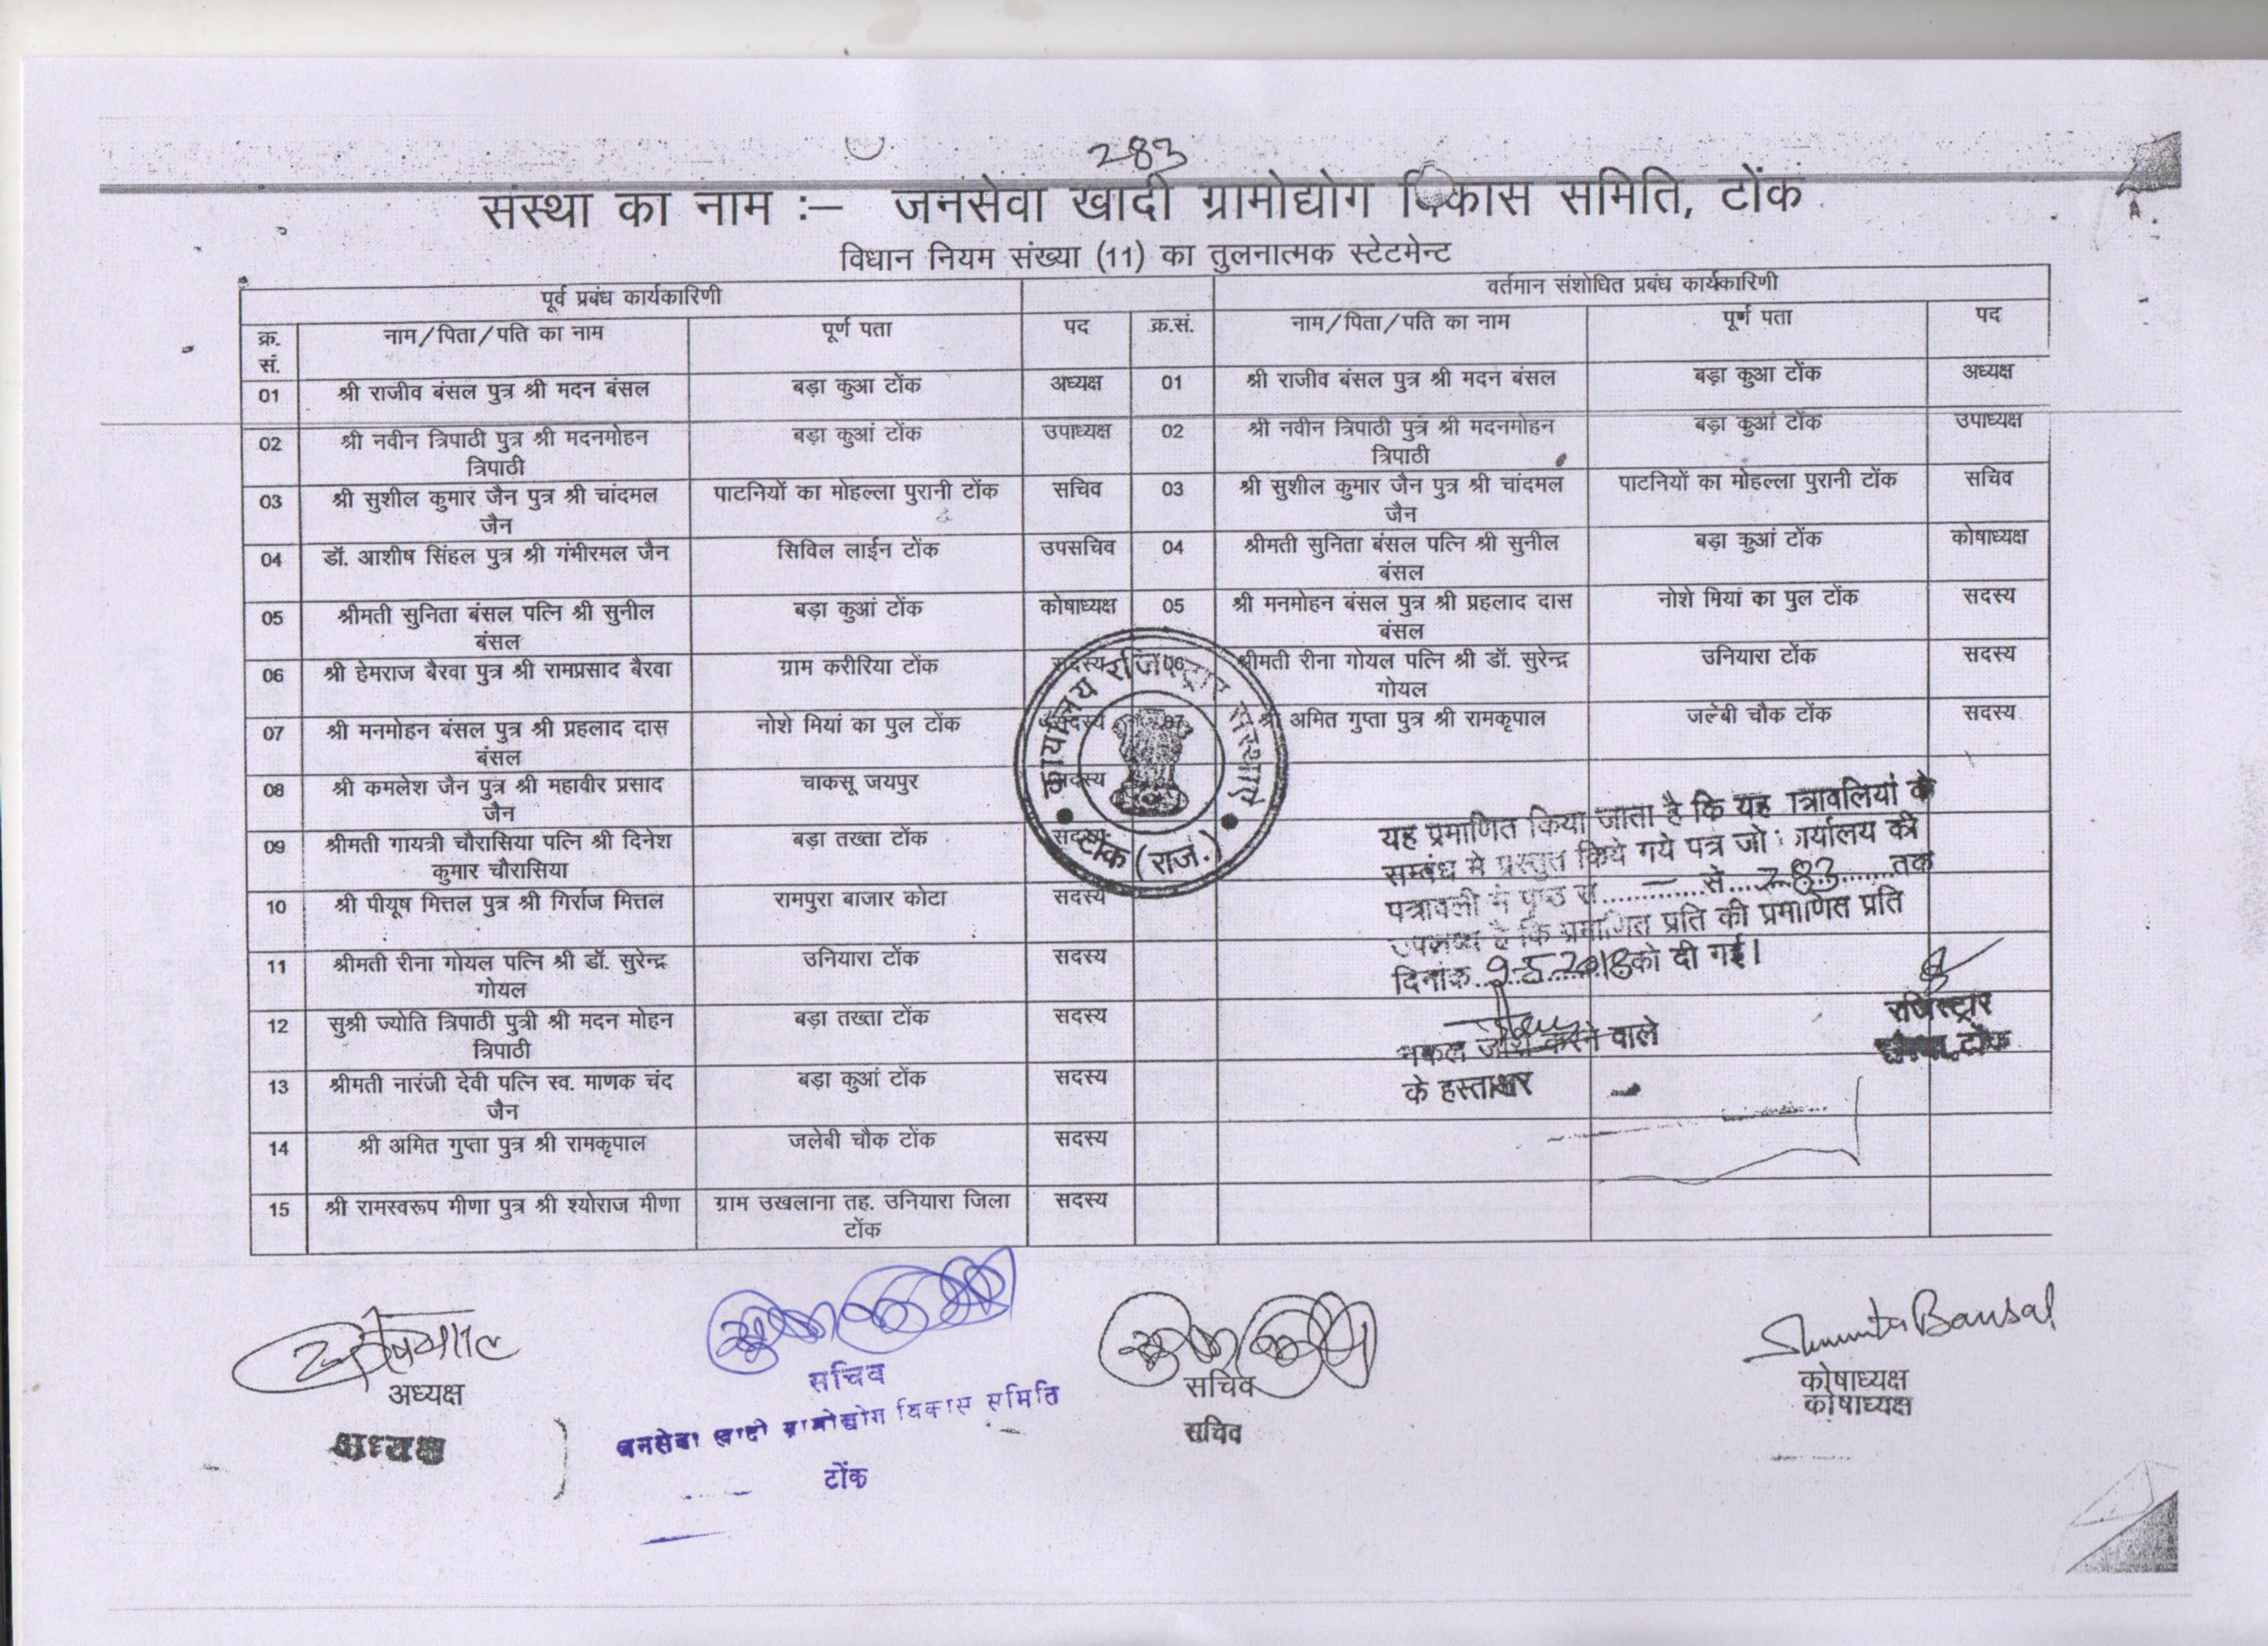 283
संस्था का नाम :– जनसेवा खादी ग्रामोद्योग विकास समिति, टोंक
विधान नियम संख्या (11) का तुलनात्मक स्टेटमेन्ट
पूर्व प्रबंध कार्यकारिणी वर्तमान संशोधित प्रबंध कार्यकारिणी
क्र. सं. नाम/पिता/पति का नाम पूर्ण पता पद क्र.सं. नाम/पिता/पति का नाम पूर्ण पता पद
01 श्री राजीव बंसल पुत्र श्री मदन बंसल बड़ा कुआ टोंक अध्यक्ष 01 श्री राजीव बंसल पुत्र श्री मदन बंसल बड़ा कुआ टोंक अध्यक्ष
02 श्री नवीन त्रिपाठी पुत्र श्री मदनमोहन त्रिपाठी बड़ा कुआं टोंक उपाध्यक्ष 02 श्री नवीन त्रिपाठी पुत्र श्री मदनमोहन त्रिपाठी बड़ा कुआं टोंक उपाध्यक्ष
03 श्री सुशील कुमार जैन पुत्र श्री चांदमल जैन पाटनियों का मोहल्ला पुरानी टोंक सचिव 03 श्री सुशील कुमार जैन पुत्र श्री चांदमल जैन पाटनियों का मोहल्ला पुरानी टोंक सचिव
04 डॉ. आशीष सिंहल पुत्र श्री गंभीरमल जैन सिविल लाईन टोंक उपसचिव 04 श्रीमती सुनिता बंसल पत्नि श्री सुनील बंसल बड़ा कुआं टोंक कोषाध्यक्ष
05 श्रीमती सुनिता बंसल पत्नि श्री सुनील बंसल बड़ा कुआं टोंक कोषाध्यक्ष 05 श्री मनमोहन बंसल पुत्र श्री प्रहलाद दास बंसल नोशे मियां का पुल टोंक सदस्य
06 श्री हेमराज बैरवा पुत्र श्री रामप्रसाद बैरवा ग्राम करीरिया टोंक सदस्य 06 श्रीमती रीना गोयल पत्नि श्री डॉ. सुरेन्द्र गोयल उनियारा टोंक सदस्य
07 श्री मनमोहन बंसल पुत्र श्री प्रहलाद दास बंसल नोशे मियां का पुल टोंक सदस्य 07 श्री अमित गुप्ता पुत्र श्री रामकृपाल जलेबी चौक टोंक सदस्य
08 श्री कमलेश जैन पुत्र श्री महावीर प्रसाद जैन चाकसू जयपुर सदस्य
09 श्रीमती गायत्री चौरासिया पत्नि श्री दिनेश कुमार चौरासिया बड़ा तख्ता टोंक सदस्य
10 श्री पीयूष मित्तल पुत्र श्री गिर्राज मित्तल रामपुरा बाजार कोटा सदस्य
11 श्रीमती रीना गोयल पत्नि श्री डॉ. सुरेन्द्र गोयल उनियारा टोंक सदस्य
12 सुश्री ज्योति त्रिपाठी पुत्री श्री मदन मोहन त्रिपाठी बड़ा तख्ता टोंक सदस्य
13 श्रीमती नारंजी देवी पत्नि स्व. माणक चंद जैन बड़ा कुआं टोंक सदस्य
14 श्री अमित गुप्ता पुत्र श्री रामकृपाल जलेबी चौक टोंक सदस्य
15 श्री रामस्वरूप मीणा पुत्र श्री श्योराज मीणा ग्राम उखलाना तह. उनियारा जिला टोंक सदस्य
कार्यालय रजिस्ट्रार संस्थाऐं
टोंक (राज.)
यह प्रमाणित किया जाता है कि यह पत्रावलियां के
सम्बंध मे प्रस्तुत किये गये पत्र जो कार्यालय की
पत्रावली में पृष्ठ सं. ........ – ........ से ..... 283 ..... तक
उपलब्ध है कि प्रमाणित प्रति की प्रमाणित प्रति
दिनांक 9-5-2018 को दी गई।
नकल जारी करने वाले
के हस्ताक्षर
रजिस्ट्रार
टोंक
अध्यक्ष
अध्यक्ष
सचिव
जनसेवा खादी ग्रामोद्योग विकास समिति
टोंक
सचिव
सचिव
Sunnita Bansal
कोषाध्यक्ष
कोषाध्यक्ष